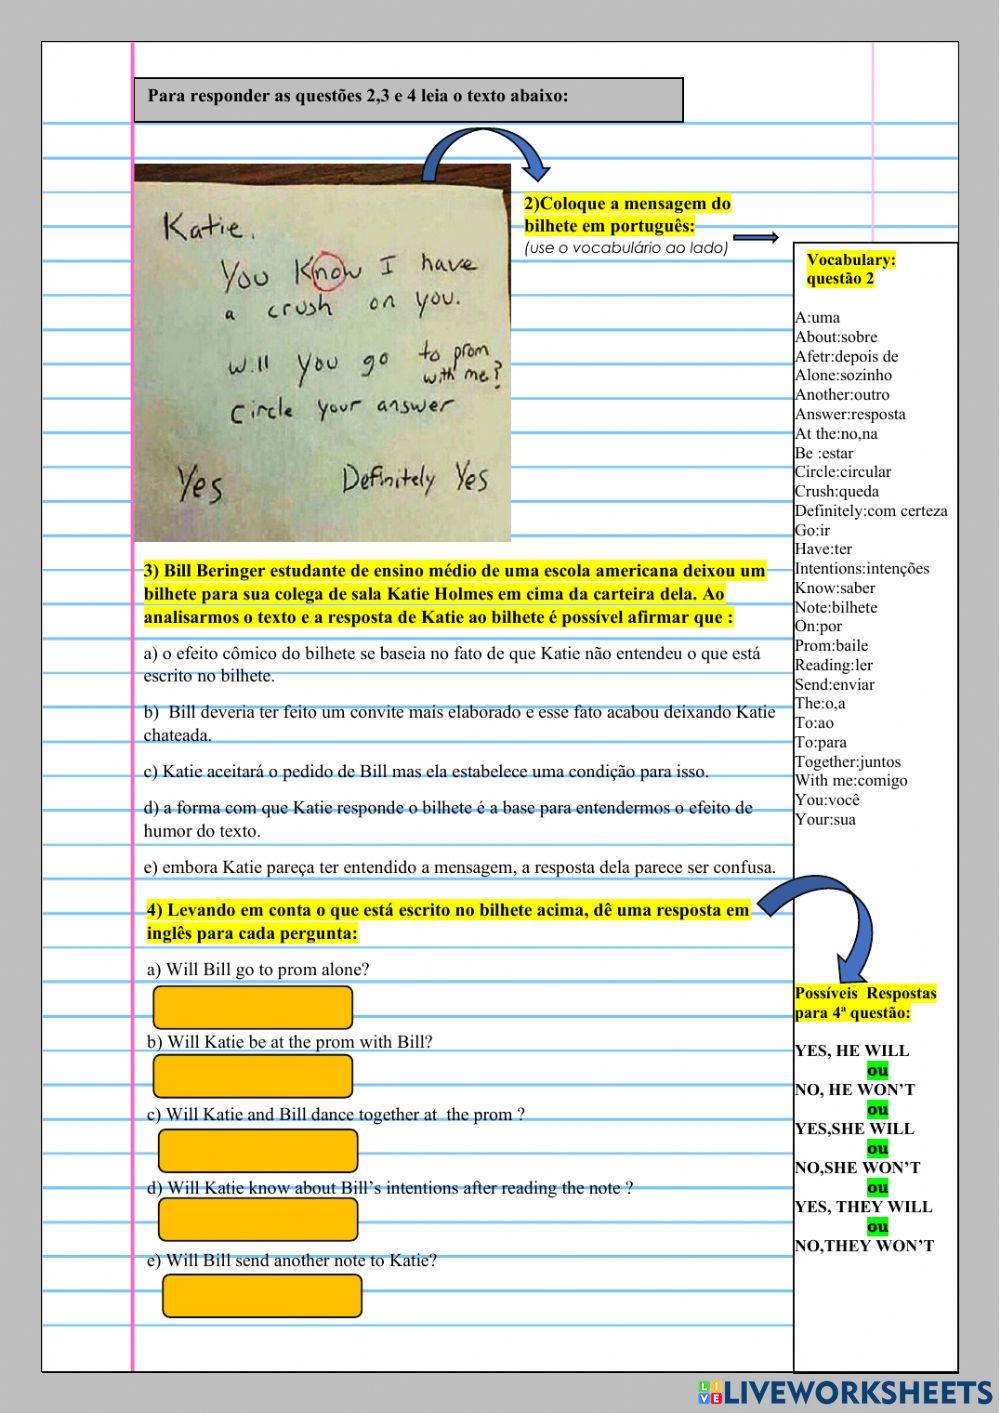 Para responder as questões 2,3 e 4 leia o texto abaixo:
Katie.
You Know I have
a crush on you.
Will you go to prom
with me?
Circle your answer
Yes Definitely Yes
2)Coloque a mensagem do
bilhete em português:
(use o vocabulário ao lado)
Vocabulary:
questão 2
A:uma
About:sobre
Afetr:depois de
Alone:sozinho
Another:outro
Answer:resposta
At the:no,na
Be :estar
Circle:circular
Crush:queda
Definitely:com certeza
Go:ir
Have:ter
Intentions:intenções
Know:saber
Note:bilhete
On:por
Prom:baile
Reading:ler
Send:enviar
The:o,a
To:ao
To:para
Together:juntos
With me:comigo
You:você
Your:sua
3) Bill Beringer estudante de ensino médio de uma escola americana deixou um
bilhete para sua colega de sala Katie Holmes em cima da carteira dela. Ao
analisarmos o texto e a resposta de Katie ao bilhete é possível afirmar que :
a) o efeito cômico do bilhete se baseia no fato de que Katie não entendeu o que está
escrito no bilhete.
b) Bill deveria ter feito um convite mais elaborado e esse fato acabou deixando Katie
chateada.
c) Katie aceitará o pedido de Bill mas ela estabelece uma condição para isso.
d) a forma com que Katie responde o bilhete é a base para entendermos o efeito de
humor do texto.
e) embora Katie pareça ter entendido a mensagem, a resposta dela parece ser confusa.
4) Levando em conta o que está escrito no bilhete acima, dê uma resposta em
inglês para cada pergunta:
a) Will Bill go to prom alone?
b) Will Katie be at the prom with Bill?
c) Will Katie and Bill dance together at the prom ?
d) Will Katie know about Bill’s intentions after reading the note ?
e) Will Bill send another note to Katie?
Possíveis Respostas
para 4ª questão:
YES, HE WILL
ou
NO, HE WON’T
ou
YES,SHE WILL
ou
NO,SHE WON’T
ou
YES, THEY WILL
ou
NO,THEY WON’T
LIVE LIVEWORKSHEETS